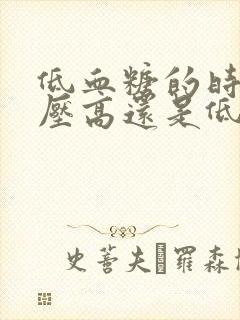 低血糖的時
壓高還是低
史蒼夫 羅森